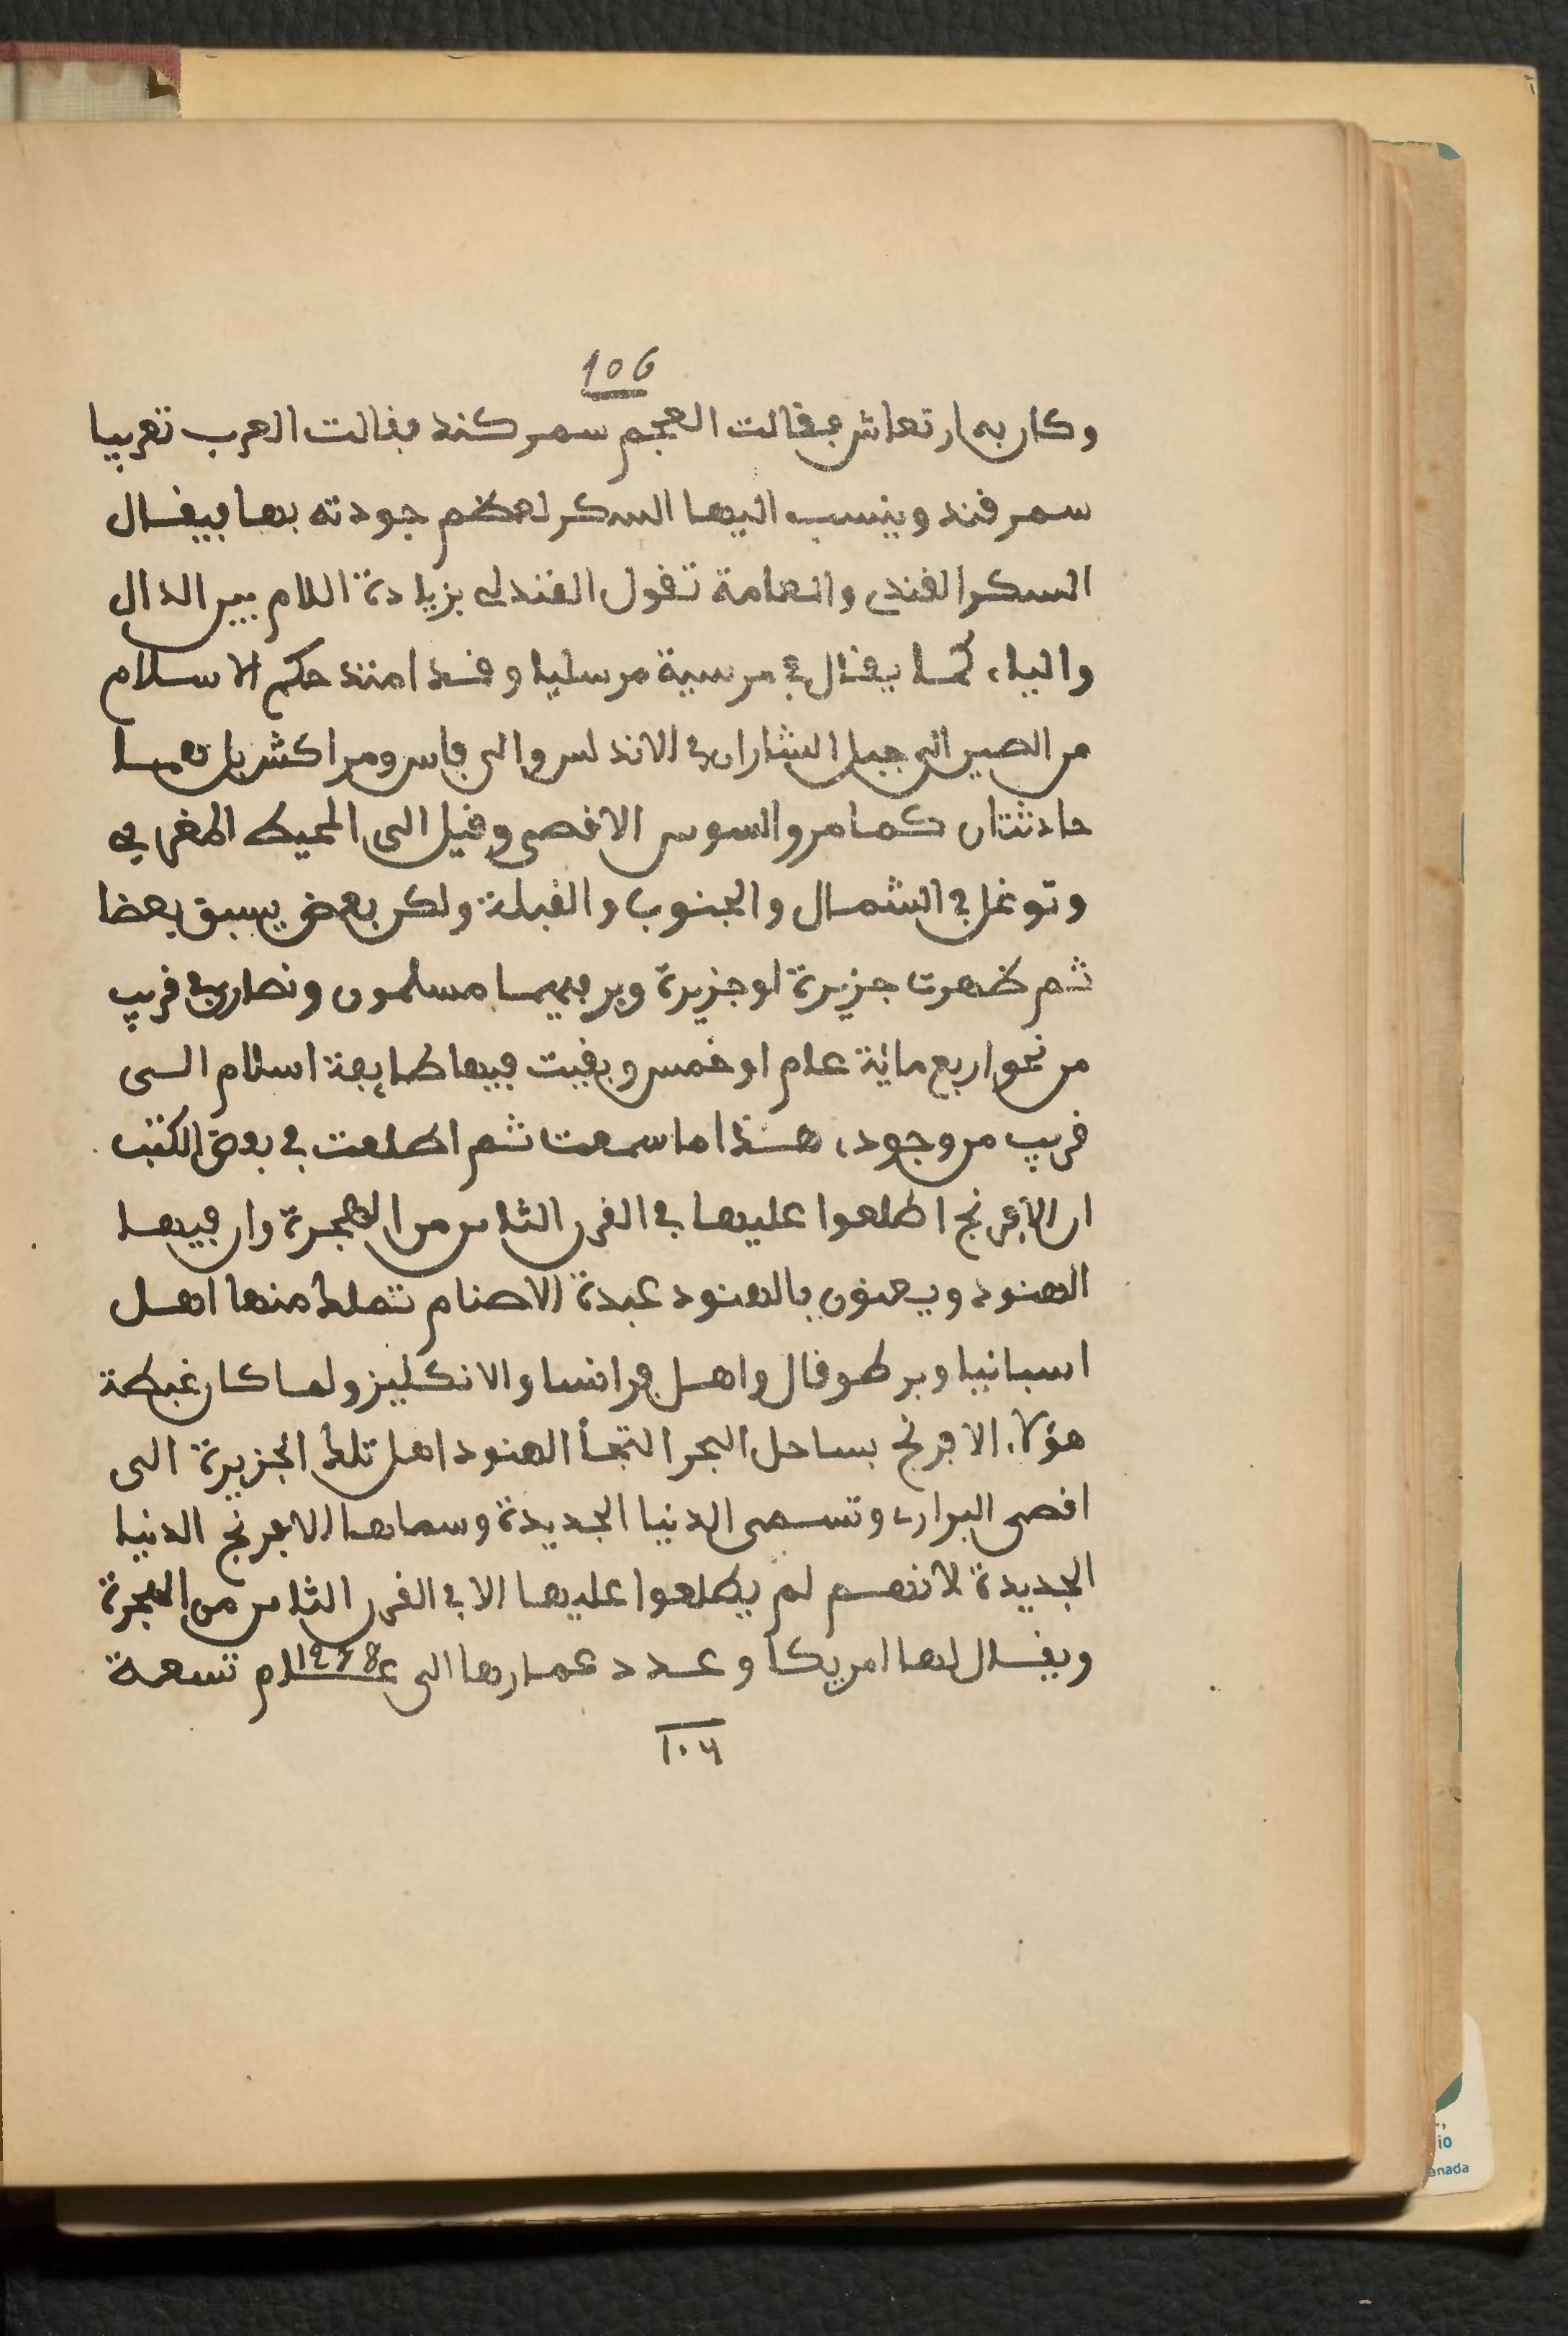 106
وكان به ارتعاش فقالت العجم سمركند فقالت العرب تعريبا
سمرقند وينسب اليها السكر لعظم جودته بها فيقال
السكر القندى والعامة تقول القندلى بزيادة اللام بين الدال
والياء كما يقال فى مرسية مرسليا وقد امتد حكم الاسلام
من الصين الى جبل الشارات فى الاندلس والى فاس ومراكش بل هما
حادثتان كما مر والسوس الاقصى وقيل الى المحيط المغربى
وتوغل فى الشمال والجنوب والقبلة ولكن بعض يسبق بعضا
ثم ظهرت جزيرة لوجزيرة وبر فيهما مسلمون ونصارى فى قريب
من نحو اربع مائة عام او خمس وبقيت فيها طايفة اسلام الى
قريب من وجود، هذا ما سمعت ثم اطلعت فى بعض الكتب
ان الافرنج اطلعوا عليها فى القرن الثامن من الهجرة وان فيها
الهنود ويعنون بالهنود عبدة الاصنام تملط منها اهل
اسبانيا وبرطوقال واهل فرانسا والانكليز ولما كان غبطة
هؤلاء الافرنج بساحل البحر التجأ الهنود اهل تلك الجزيرة الى
اقصى البرارى وتسمى الدنيا الجديدة وسماها الافرنج الدنيا
الجديدة لانهم لم يطلعوا عليها الا فى القرن الثامن من الهجرة
ويقال لها امريكا وعدد عمارها الى عام ١٢٤٨ تسعة
١٠٦